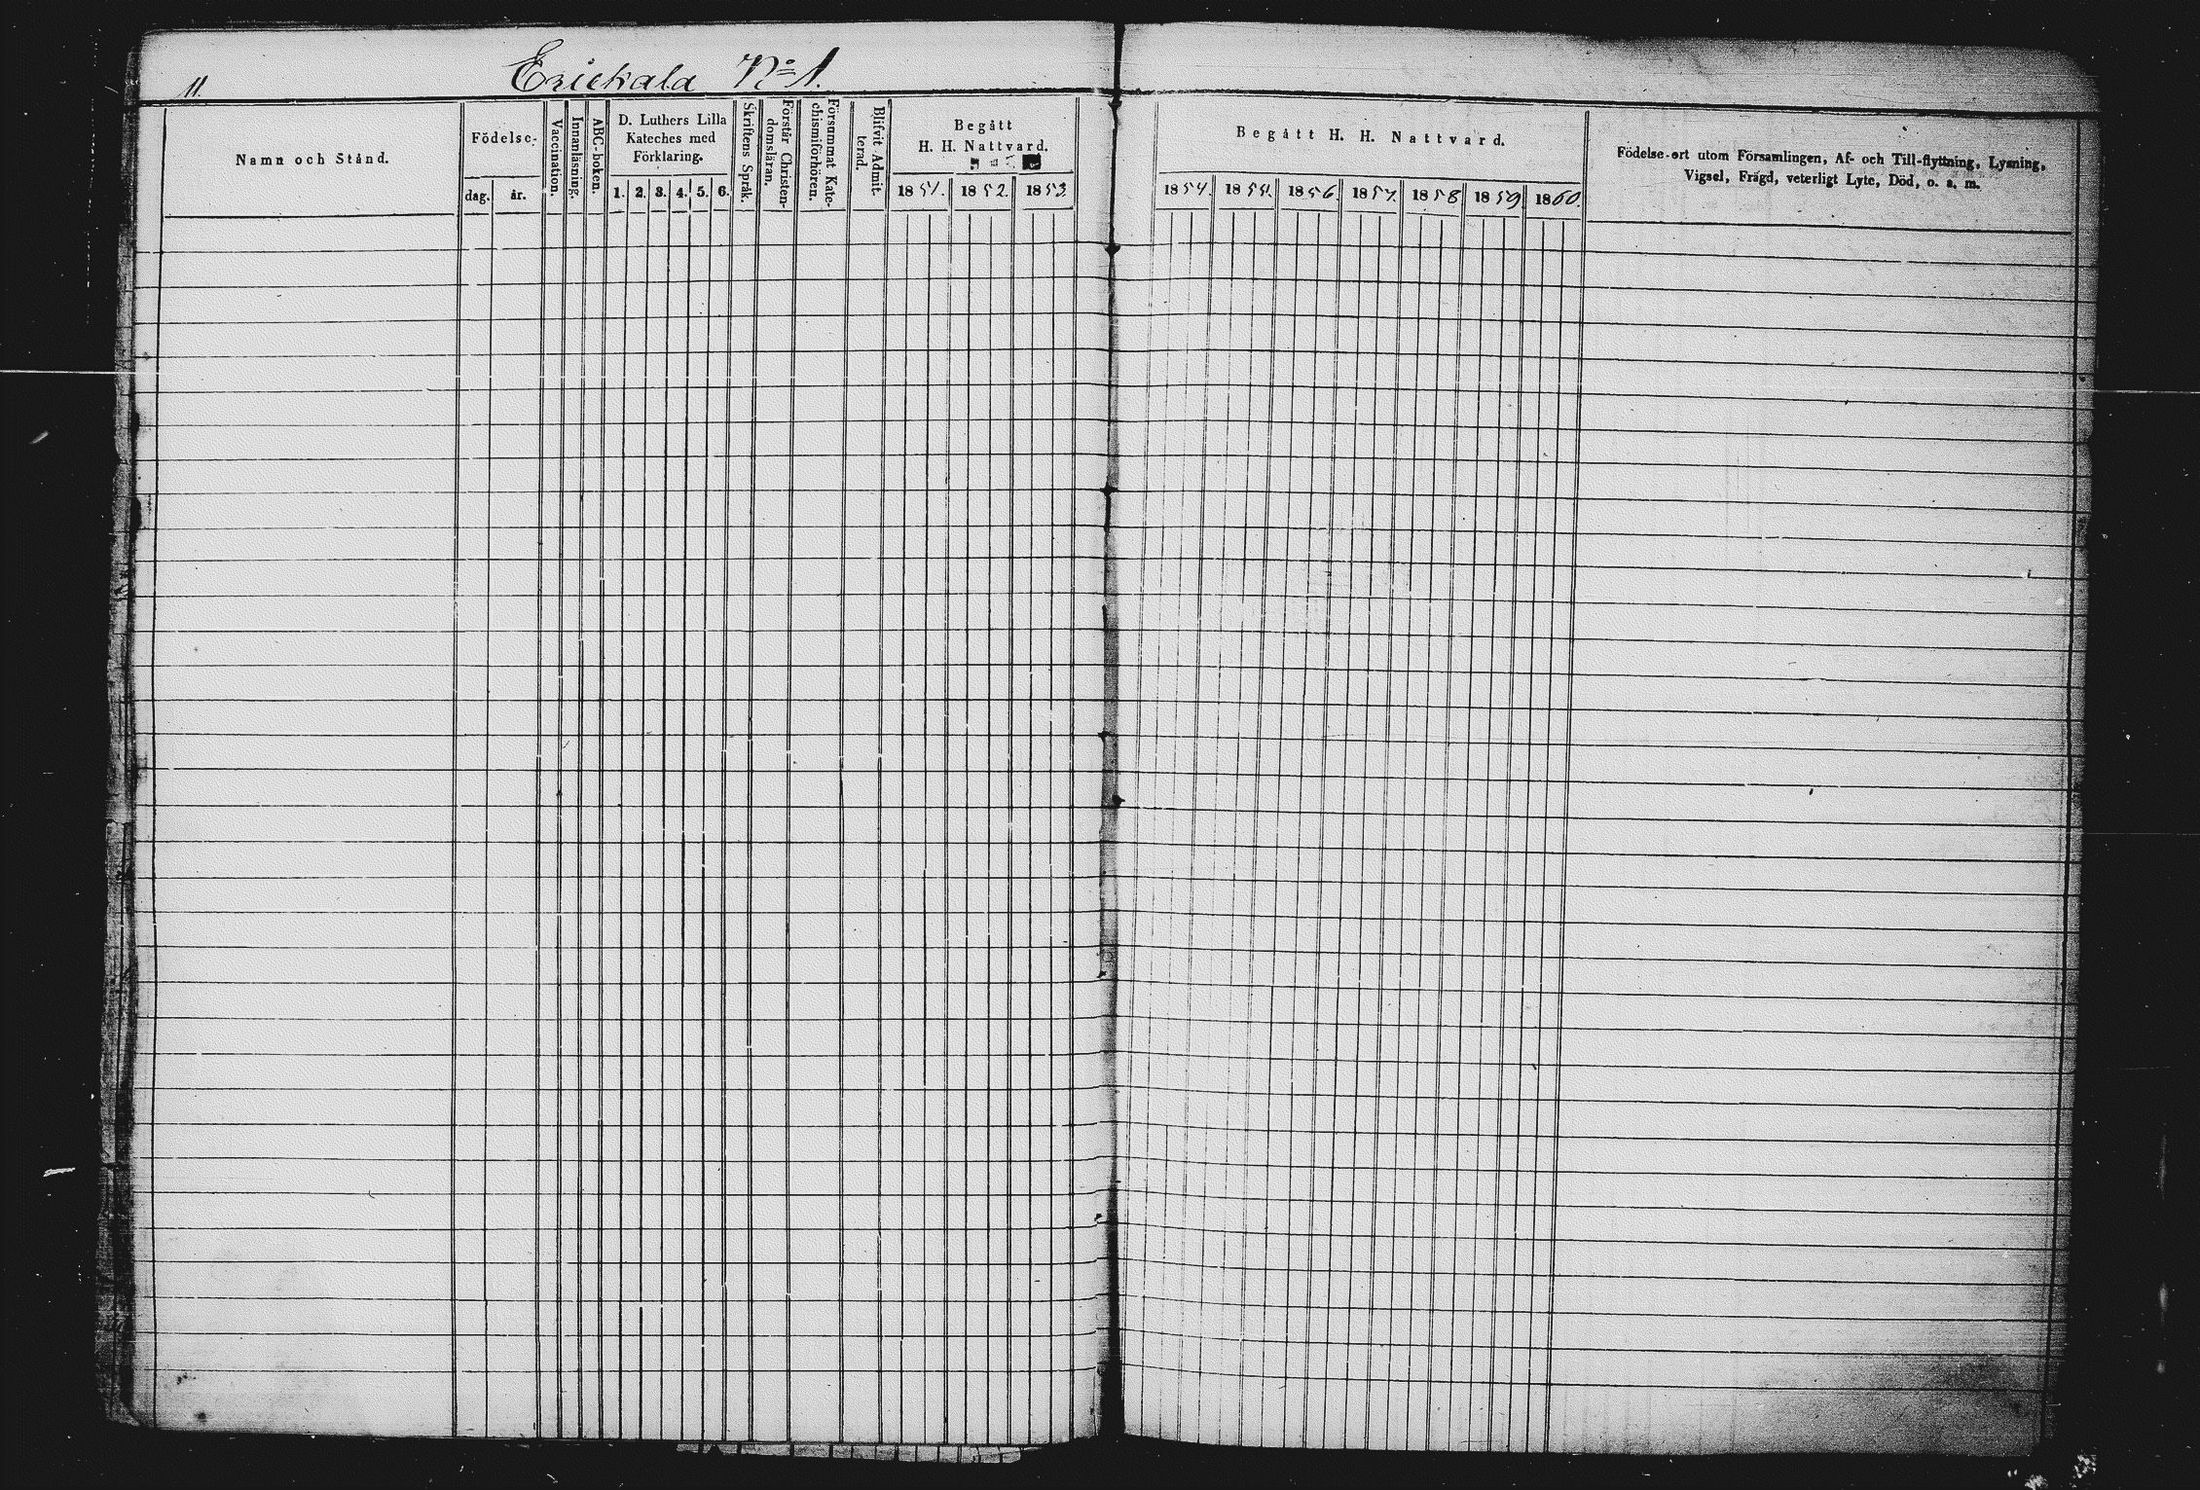 11.
Erickala No 1.
Namn och Stånd.
Födelse-
dag.
år.
Vaccination.
Innanläsning.
ABC-boken.
D. Luthers Lilla
Kateches med
Förklaring.
1. 2. 3. 4. 5. 6.
Skriftens Språk.
Förstår Christen-
domsläran.
Försummat Kate-
chismiförhören.
Blifvit Admit-
terad.
Begått
H. H. Nattvard.
1851. 1852. 1853.
Begått H. H. Nattvard.
1854. 1855. 1856. 1857. 1858 1859 1860.
Födelse-ort utom Församlingen, Af- och Till-flyttning, Lysning,
Vigsel, Frägd, veterligt Lyte, Död, o. s. m.